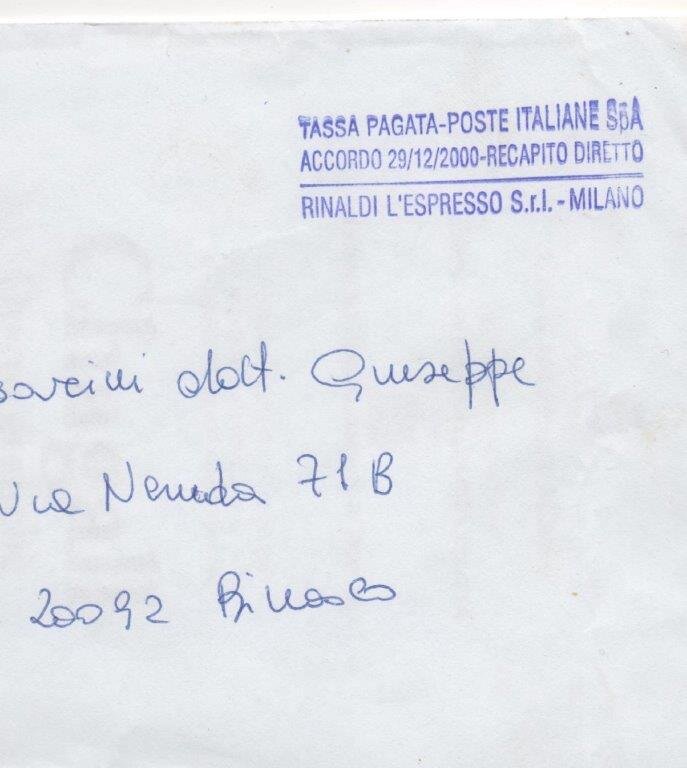 TASSA PAGATA-POSTE ITALIANE SpA
ACCORDO 29/12/2000-RECAPITO DIRETTO
RINALDI L'ESPRESSO S.r.l. - MILANO
dott. Giuseppe
Via Neruda 71 B
20092 Binasco